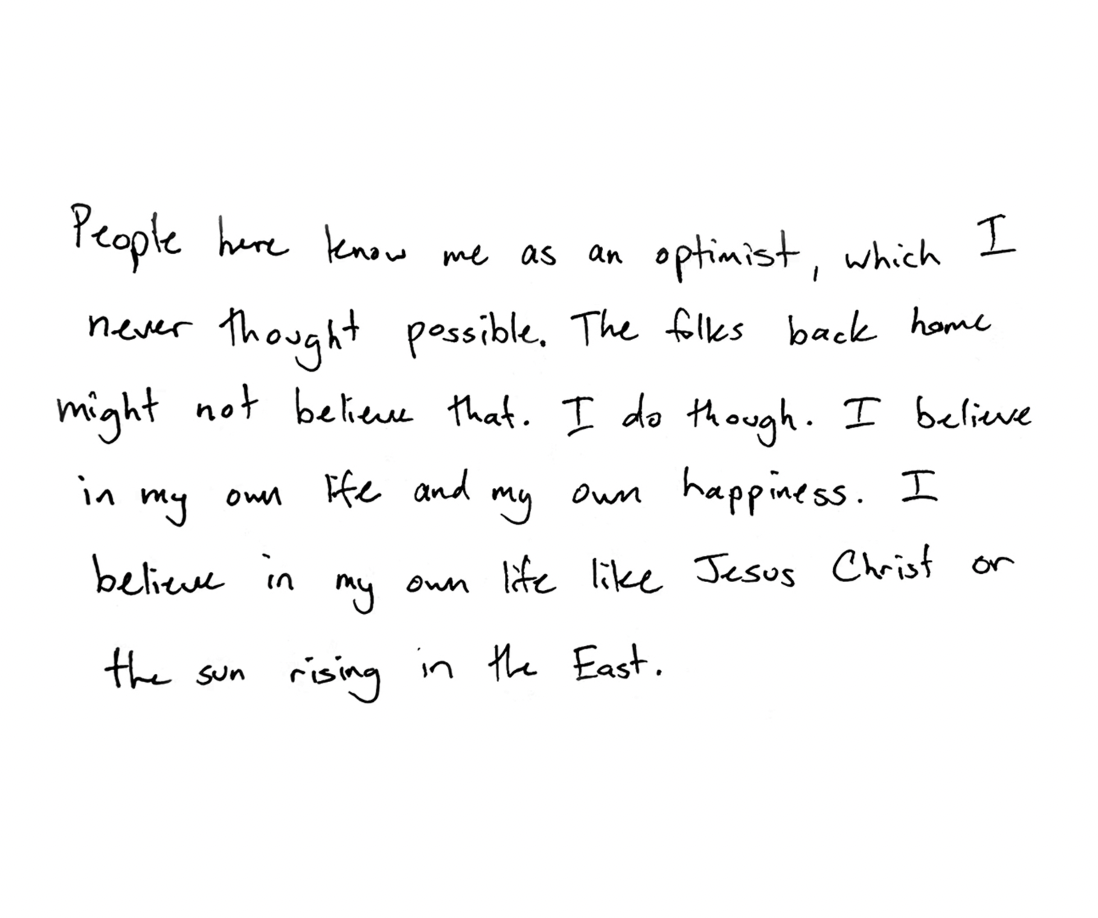 People here know me as an optimist, which I
never thought possible. The folks back home
might not believe that. I do though. I believe
in my own life and my own happiness. I
believe in my own life like Jesus Christ or
the sun rising in the East.